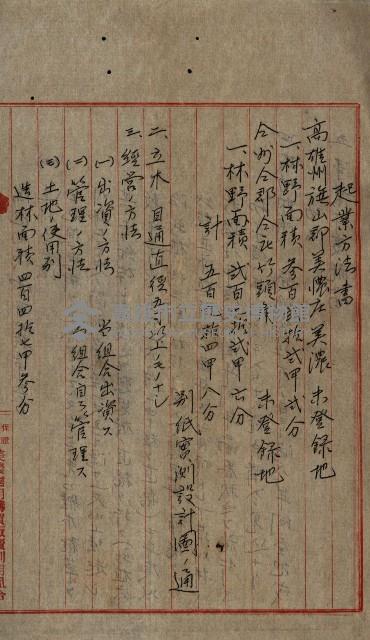 起業方法書
高雄州旗山郡美濃庄美濃 未登録地
一、林野面積 参百 拾弐甲弐分
仝州仝郡仝庄竹頭 未登録地
一、林野面積 弐百 弐甲六分
計 五百 拾四甲八分
別紙実測設計図ノ通
二、立木 目通直径五寸以上ノモノナシ
三、経営ノ方法
(一) 出資ノ方法 当組合出資ス
(二) 管理ノ方法 当組合自ラ管理ス
(三) 土地ノ使用別
造林面積 四百四拾七甲参分
高雄市立歷史博物館